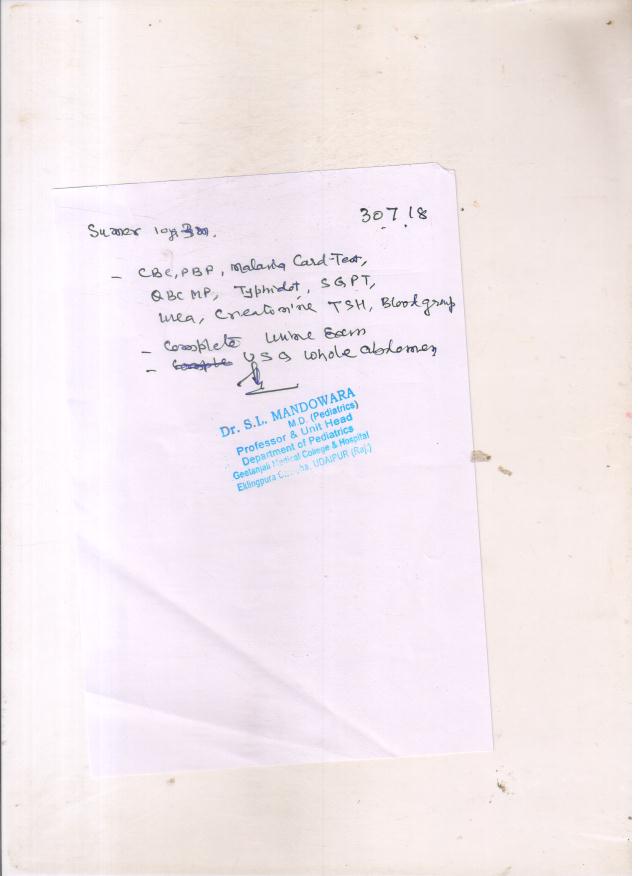 30.7.18
Sumer 10y
- CBC, PBP, Malaria Card-Test,
QBC MP, Typhidot, SGPT,
Urea, Creatinine TSH, Blood group
- Complete Urine Exam
- USG Whole abdomen
Dr. S.L. MANDOWARA
M.D. (Pediatrics)
Professor & Unit Head
Department of Pediatrics
Geetanjali Medical College & Hospital
Eklingpura UDAIPUR (Raj.)